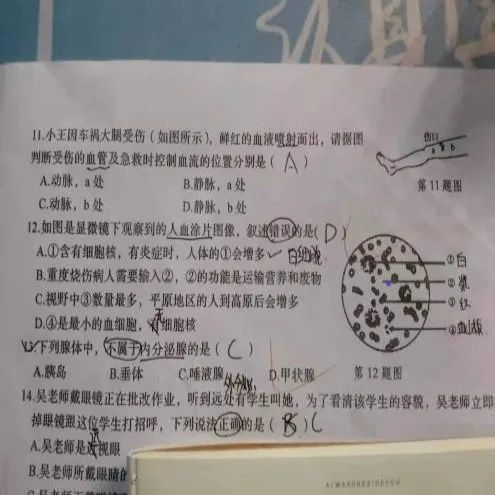 11.小王因车祸大腿受伤（如图所示），鲜红的血液喷射而出，请据图
判断受伤的血管及急救时控制血流的位置分别是（A）
A.动脉，a处 B.静脉，a处
C.动脉，b处 D.静脉，b处
伤口
a b
第11题图
12.如图是显微镜下观察到的人血涂片图像，叙述错误的是（D）
A.①含有细胞核，有炎症时，人体的①会增多✓ 白细胞
B.重度烧伤病人需要输入②，②的功能是运输营养和废物
C.视野中③数量最多，平原地区的人到高原后会增多
D.④是最小的血细胞，有细胞核
无
①白
②浆
③红
④血板
第12题图
13.下列腺体中，不属于内分泌腺的是（C）
A.胰岛 B.垂体 C.唾液腺 D.甲状腺
外分泌
14.吴老师戴眼镜正在批改作业，听到远处有学生叫她，为了看清该学生的容貌，吴老师立即
掉眼镜跟这位学生打招呼，下列说法正确的是（B）C
A.吴老师是近视眼
远
B.吴老师所戴眼睛的